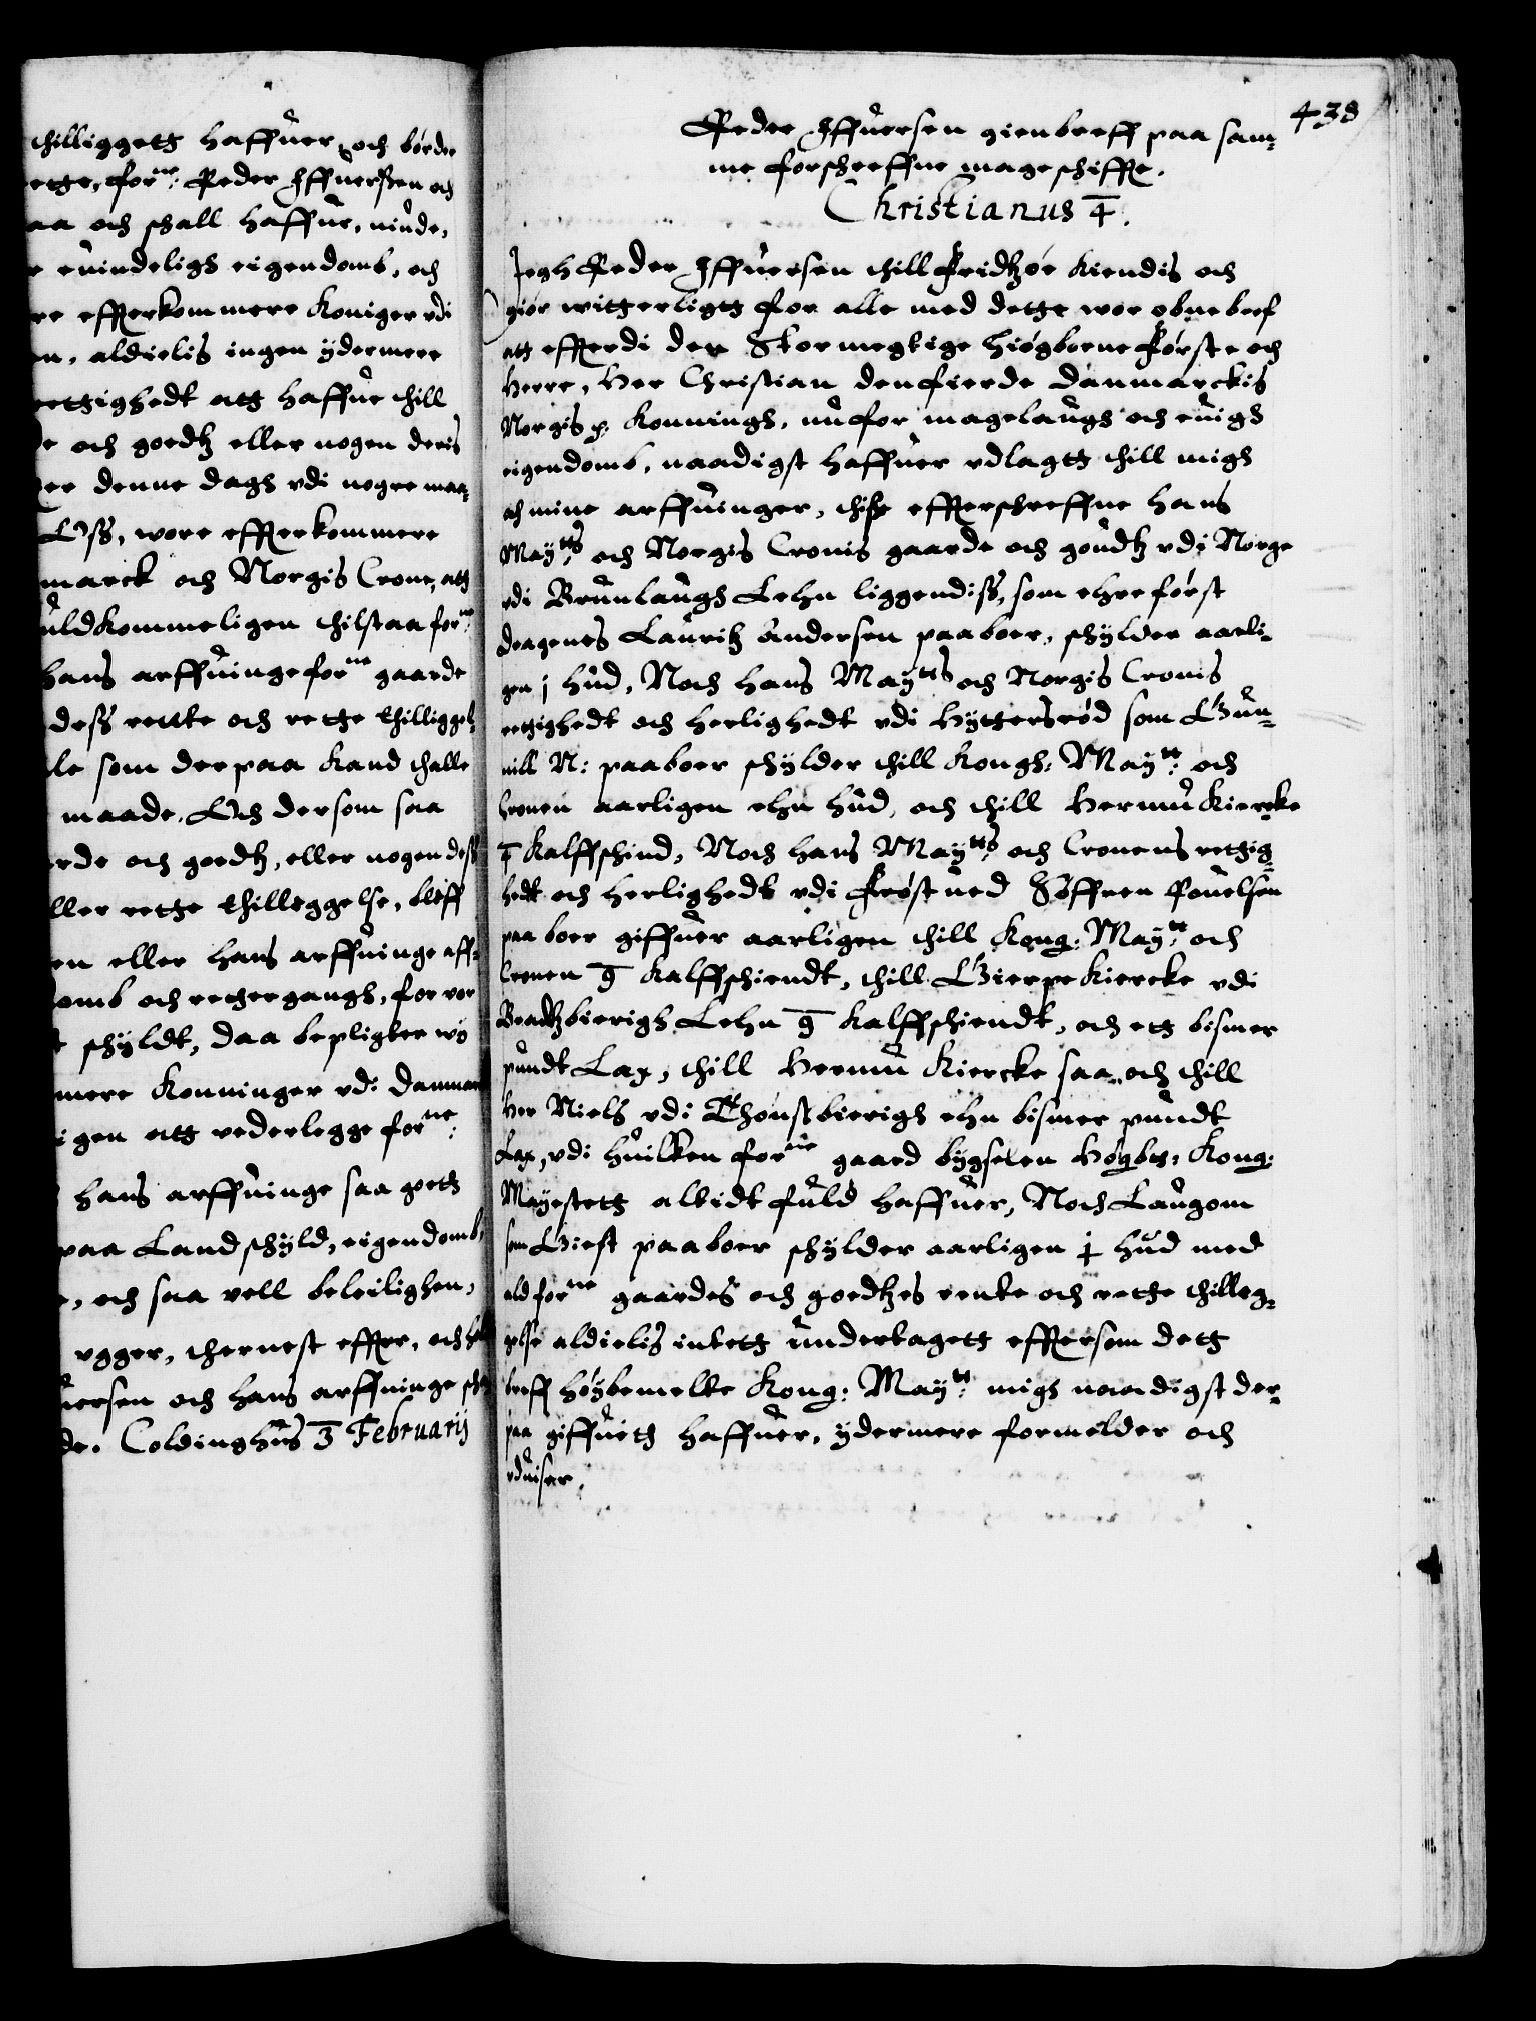 thilliggett haffuer, och børder
ette, forne: Peder Iffuerssen och
aa och schall haffue, niude,
r euindeligh eigendomb, och
re effterkommere Koniger vdi
en, aldielis ingen ydermere
rettighedt att haffue thill
de och goedtz eller nogen deris
er denne dagh vdi nogre maa-
Oss, wore effterkommere
marck och Norgis Crone, att
uldkommeligen thilstaa forne
hans arffuinge forne gaarde
dess rentte och rette thilligget
le som der paa kand thalle
maade. Och dersom saa
erde och goedtz, eller nogen dess
ller rette thilleggelse, bleff
en eller hans arffuinge aff-
omb och rettergangh, for vor
t schyldt, daa bepligter wy
mere Konninger vdi Danmarck
igen att vederlegge forne:
hans arffuinge saa gott
paa Landschyld, eigendomb,
e, och saa vell beleilighen,
ygger, thernest effter, och hol
uersen och hans arffuinge sch
de. Coldinghus 3 Februarij
438
Peder Iffuersen gienbreff paa sam-
me forschreffne mageschiffte.
Christianus 4.
Jegh Peder Iffuersen thill Fridtzøe kiendis och
giør witterligtt for alle med dette wor obne bref
att effterdi den Stormegtige høgborne Første och
Herre, Her Christian den fierde Danmarckis
Norgis p. Konningh, nu for magelaugh och euigh
eigendomb, naadigst haffuer vdlagtt thill migh
och mine arffuinger, thisse effterschreffne hans
Maytts och Norgis Cronis gaarde och goudtz vdi Norge
vdi Brunlaugh Lehn liggendiss, som ehre først
Dragenes Lauritz Andersen paaboer, schylder aarli-
gen j hud, Noch hans Maytts och Norgis Cronis
rettighedt och herlighedt vdi Hyttersrød som Gun-
nill N: paaboer schylder thill Kongh: Maytt: och
Cronen aarligen ehn hud, och thill Hermu Kiercke
4 Kalffschind, Noch hans Maytts och Cronens rettig-
hedt och herlighedt vdi Frøstued Søffren Pouelsen
paaboer giffuer aarligen thill Kong: Maytt och
Cronen 9 Kalffschiendt, thill Gierpe Kiercke vdi
Bradtzbierigh Lehn 9 Kalffschiendt, och ett bismer
pundt Lax, thill Hermu Kiercke saa och thill
Her Niels vdi Thønsbierigh ehn bismer pundt
Lax, vdi huilken forne gaard bygselen Høgbte: Kong:
Mayestett altidt fuld haffuer, Noch Laugom
som Giest paaboer schylder aarligen j hud med
ald forne gaardes och goedtzes rente och rette thilleg-
gelse aldielis intett undertagett effttersom dett
breff høybemelte Kong: Maytt: migh naadigst der-
paa giffuett haffuer, ydermere formelder och
vduiser.